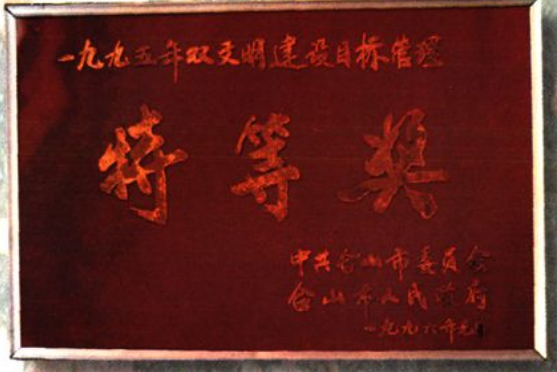 一九九五年双文明建设目标管理
特等奖
中共台山市委员会
台山市人民政府
一九九六年元月